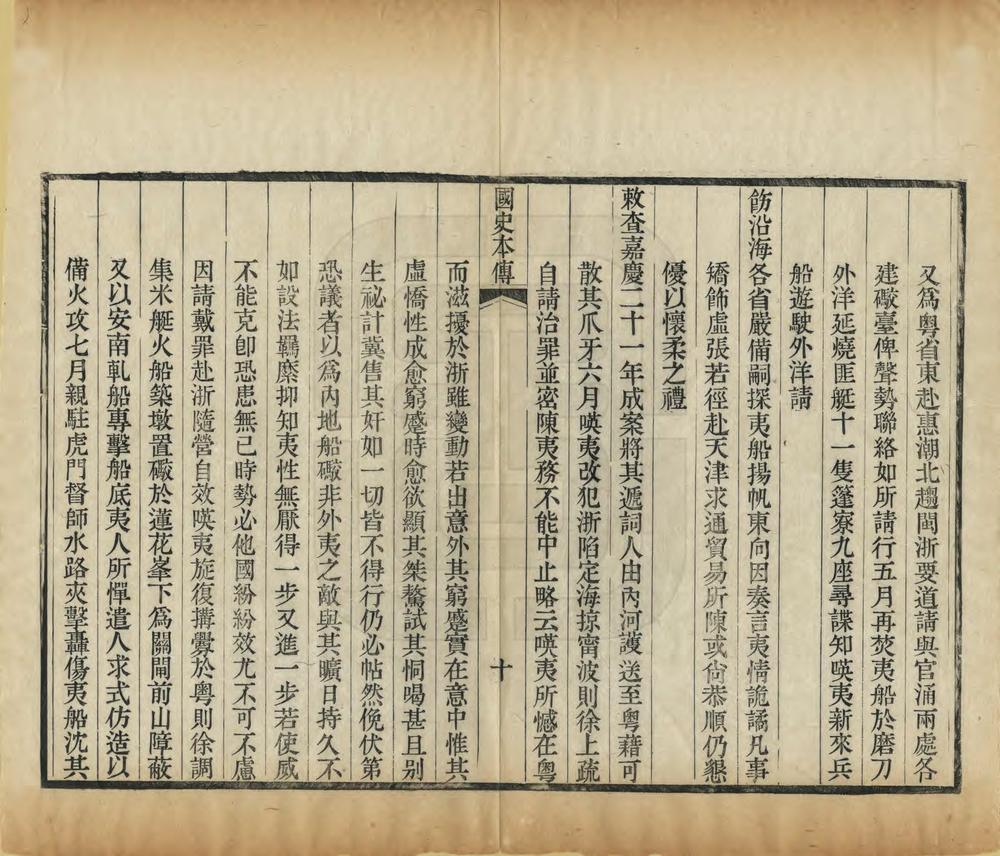 又爲粵省東赴惠潮北趨閩浙要道請與官涌兩處各
建礮臺俾聲勢聯絡如所請行五月再焚夷船於磨刀
外洋延燒匪艇十一隻篷寮九座尋諜知㗸夷新來兵
船遊駛外洋請
飭沿海各省嚴備嗣探夷船揚帆東向因奏言夷情詭譎凡事
矯飾虛張若徑赴天津求通貿易所陳或尙恭順仍懇
優以懷柔之禮
敕查嘉慶二十一年成案將其遞詞人由內河護送至粵藉可
散其爪牙六月㗸夷改犯浙陷定海掠甯波則徐上疏
自請治罪並密陳夷務不能中止略云㗸夷所憾在粵
國史本傳
十
而滋擾於浙雖變動若出意外其窮蹙實在意中惟其
虛憍性成愈窮蹙時愈欲顯其桀驁試其恫喝甚且別
生祕計冀售其奸如一切皆不得行仍必帖然俛伏第
恐議者以爲內地船礮非外夷之敵與其曠日持久不
如設法羈縻抑知夷性無厭得一步又進一步若使威
不能克卽恐患無已時勢必他國紛紛效尤不可不慮
因請戴罪赴浙隨營自效㗸夷旋復搆釁於粵則徐調
集米艇火船築墩置礮於蓮花峯下爲關閘前山障蔽
又以安南軋船專擊船底夷人所憚遣人求式仿造以
備火攻七月親駐虎門督師水路夾擊轟傷夷船沈其